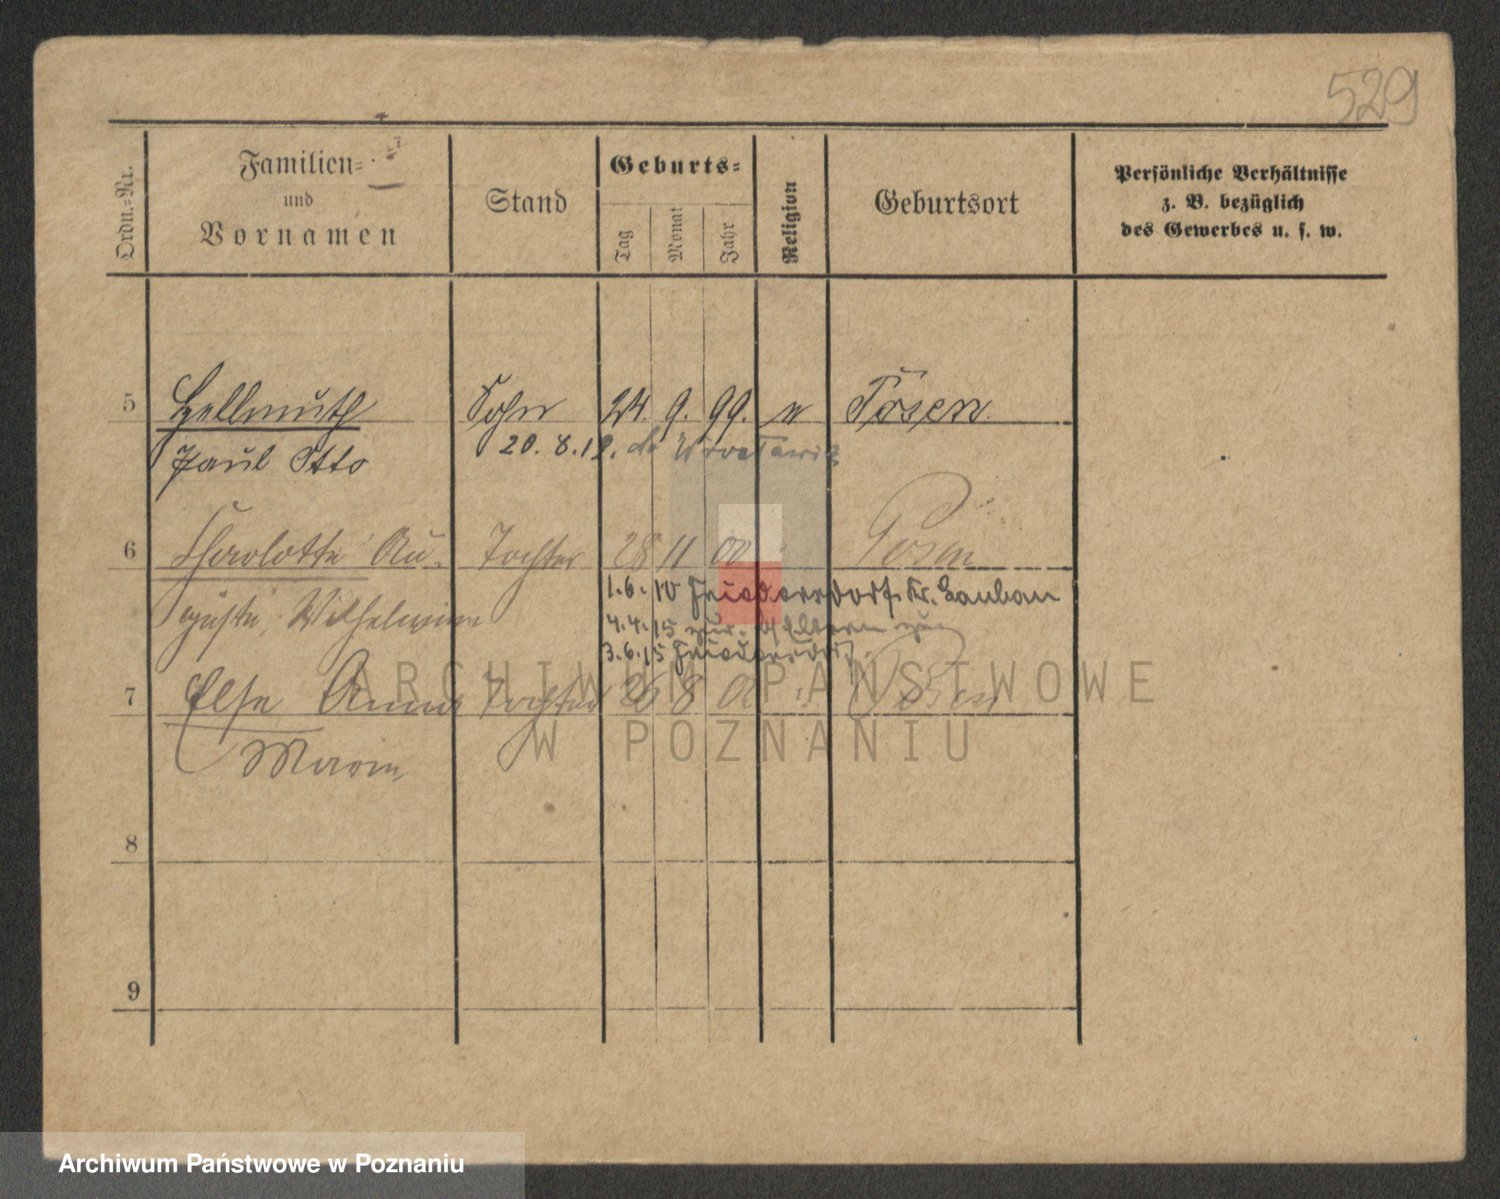 529
Ordn.-Nr.
Familien-
und
Vornamen
Stand
Geburts-
Tag
Monat
Jahr
Religion
Geburtsort
Persönliche Verhältnisse
z. B. bezüglich
des Gewerbes u. s. w.
5 Hellmuth Sohn 24. 9. 99. Posen
Paul Otto 20. 8. 19.
6 Charlotte Au- Tochter 28 11 00 Posen
guste, Wilhelmine 1. 6. 10 Friedersdorf Kr. Lauban
4. 4. 15 Eltern
3. 6. 15 Friedersdorf
7 Else Anna Tochter 26 8 Posen
Marie
8
9
ARCHIWUM PAŃSTWOWE
W POZNANIU
Archiwum Państwowe w Poznaniu